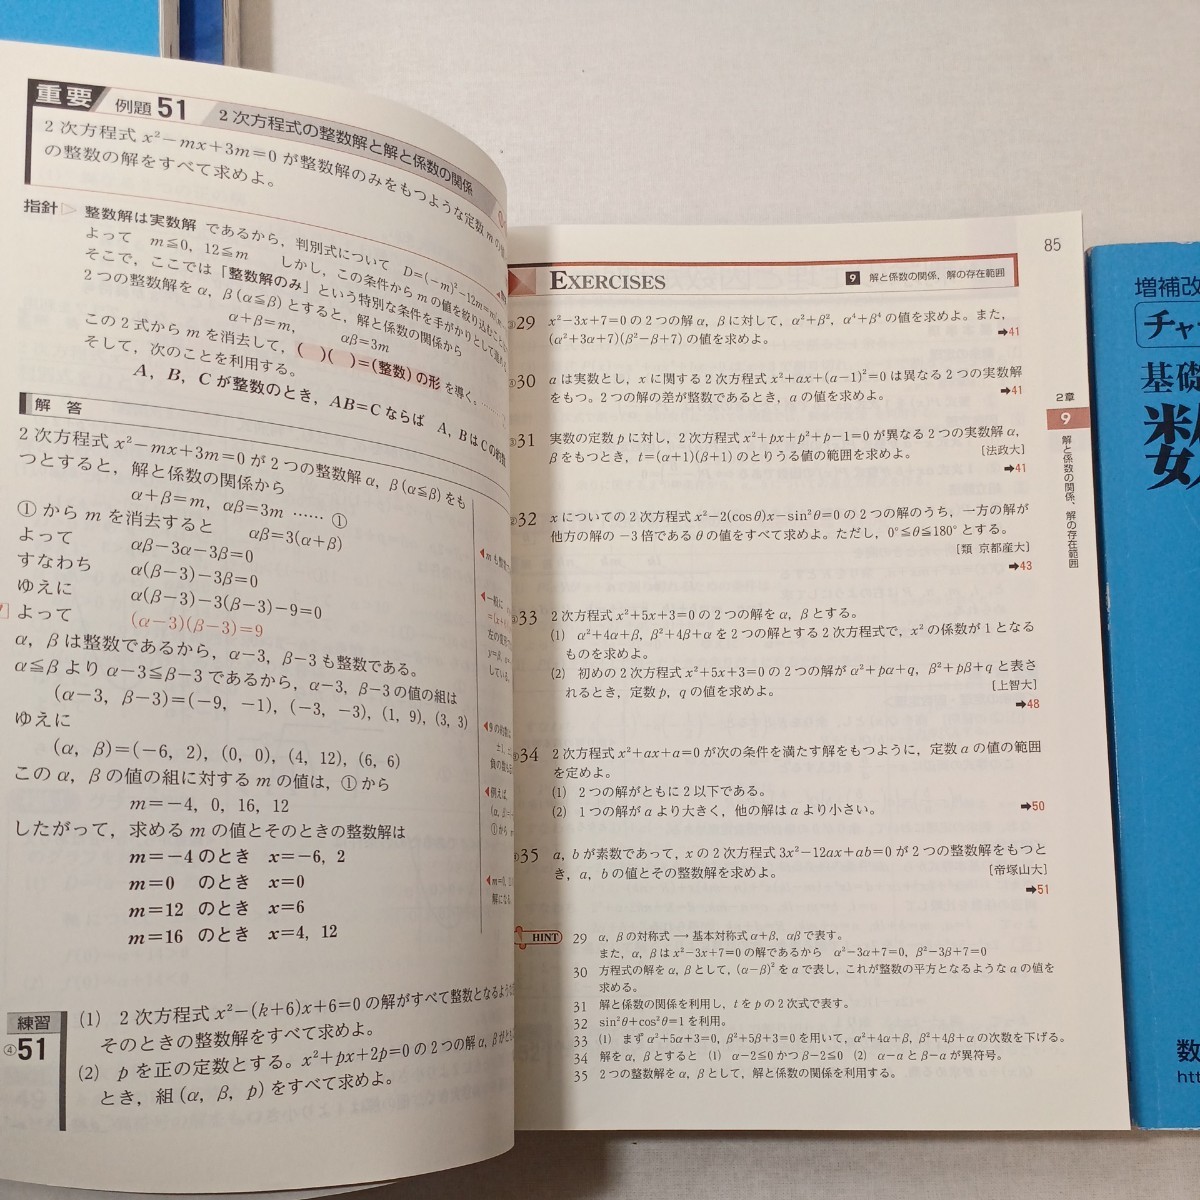 重要 例題 51 2次方程式の整数解と解と係数の関係
2次方程式 x²−mx+3m=0 が整数解のみをもつような定数 m の
の整数の解をすべて求めよ。
指針 整数解は実数解 であるから，判別式について D=(−m)²−12m=
よって m≦0, 12≦m しかし，この条件から m の値を絞り込む
そこで，ここでは「整数解のみ」という特別な条件を手がかりとして進める
2つの整数解を α, β (α≦β) とすると，解と係数の関係から
α+β=m, αβ=3m
この2式から m を消去して，( )( )=(整数) の形 を導く。
そして，次のことを利用する。
A, B, C が整数のとき，AB=C ならば A, B は C の約数
解答
2次方程式 x²−mx+3m=0 が2つの整数解 α, β (α≦β) をも
つとすると，解と係数の関係から
α+β=m, αβ=3m …… ①
① から m を消去すると αβ=3(α+β)
よって αβ−3α−3β=0
すなわち α(β−3)−3β=0
ゆえに α(β−3)−3(β−3)−9=0
よって (α−3)(β−3)=9
α, β は整数であるから，α−3, β−3 も整数である。
α≦β より α−3≦β−3 であるから，α−3, β−3 の値の組は
(α−3, β−3)=(−9, −1), (−3, −3), (1, 9), (3, 3)
ゆえに
(α, β)=(−6, 2), (0, 0), (4, 12), (6, 6)
この α, β の値の組に対する m の値は，① から
m=−4, 0, 16, 12
したがって，求める m の値とそのときの整数解は
m=−4 のとき x=−6, 2
m=0 のとき x=0
m=12 のとき x=6
m=16 のとき x=4, 12
◀m も整数
◀一般に
左の変形
している。
◀9の約数
±1,
負の数も
◀例えば，
①から
◀m=0,
解になる
練習 ④51
(1) 2次方程式 x²−(k+6)x+6=0 の解がすべて整数となるような
そのときの整数解をすべて求めよ。
(2) p を正の定数とする。x²+px+2p=0 の2つの解 α, β が
とき，組 (α, β, p) をすべて求めよ。
85
EXERCISES 9 解と係数の関係，解の存在範囲
29 x²−3x+7=0 の2つの解 α, β に対して，α²+β², α⁴+β⁴ の値を求めよ。また，
(α²+3α+7)(β²−β+7) の値を求めよ。 ➡41
30 a は実数とし，x に関する2次方程式 x²+ax+(a−1)²=0 は異なる2つの実数解
をもつ。2つの解の差が整数であるとき，a の値を求めよ。 ➡41
31 実数の定数 p に対し，2次方程式 x²+px+p²+p−1=0 が異なる2つの実数解 α,
β をもつとき，t=(α+1)(β+1) のとりうる値の範囲を求めよ。 [法政大]
➡41
32 x についての2次方程式 x²−2(cosθ)x−sin²θ=0 の2つの解のうち，一方の解が
他方の解の −3 倍である θ の値をすべて求めよ。ただし，0°≦θ≦180° とする。
[類 京都産大]
➡43
33 2次方程式 x²+5x+3=0 の2つの解を α, β とする。
(1) α²+4α+β, β²+4β+α を2つの解とする2次方程式で，x² の係数が1となる
ものを求めよ。
(2) 初めの2次方程式 x²+5x+3=0 の2つの解が α²+pα+q, β²+pβ+q と表さ
れるとき，定数 p, q の値を求めよ。 [上智大]
➡48
34 2次方程式 x²+ax+a=0 が次の条件を満たす解をもつように，定数 a の値の範囲
を定めよ。
(1) 2つの解がともに2以下である。
(2) 1つの解が a より大きく，他の解は a より小さい。 ➡50
35 a, b が素数であって，x の2次方程式 3x²−12ax+ab=0 が2つの整数解をもつと
き，a, b の値とその整数解を求めよ。 [帝塚山大]
➡51
HINT 29 α, β の対称式 → 基本対称式 α+β, αβ で表す。
また，α, β は x²−3x+7=0 の解であるから α²−3α+7=0, β²−3β+7=0
30 方程式の解を α, β として，(α−β)² を a で表し，これが整数の平方となるような a の値を
求める。
31 解と係数の関係を利用し，t を p の2次式で表す。
32 sin²θ+cos²θ=1 を利用。
33 (1) まず α²+5α+3=0, β²+5β+3=0 を用いて，α²+4α+β, β²+4β+α の次数を下げる。
34 解を α, β とすると (1) α−2≦0 かつ β−2≦0 (2) α−a と β−a が異符号。
35 2つの整数解を α, β として，解と係数の関係を利用する。
2章
9
解と係数の関係、解の存在範囲
増補改
チャ
基礎
数
数
htt